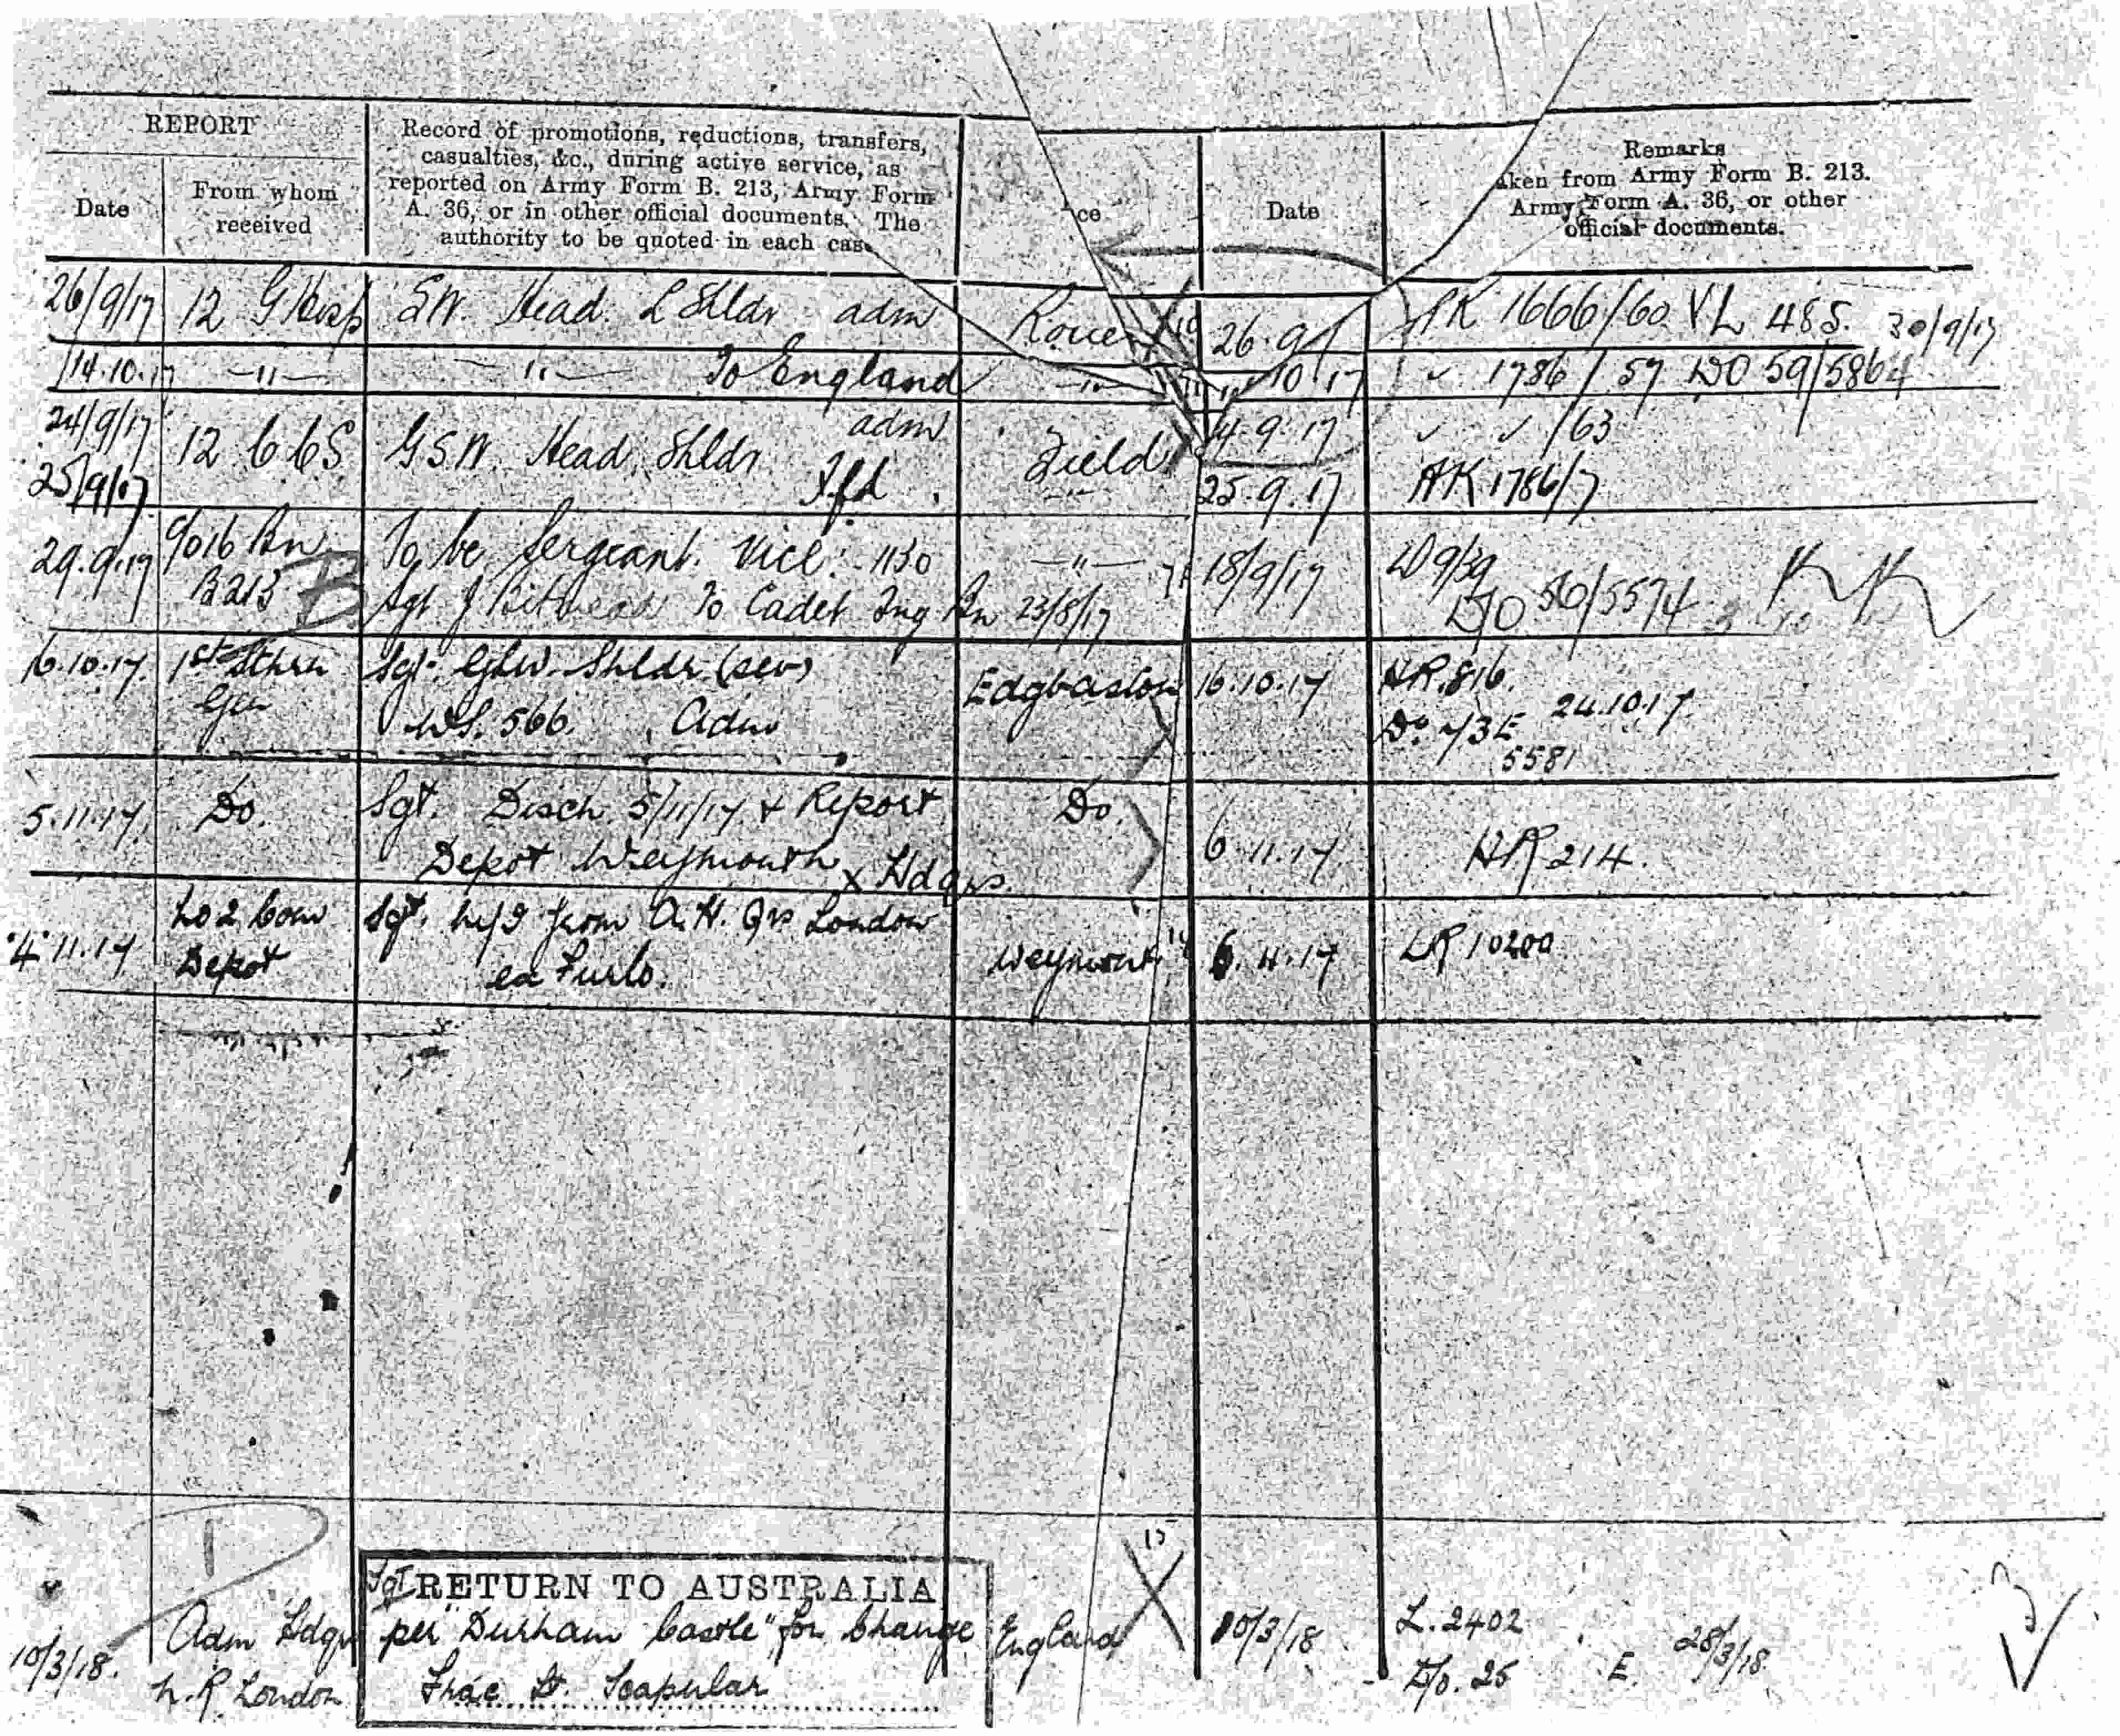 REPORT
Date
From whom
received
Record of promotions, reductions, transfers,
casualties, &c., during active service, as
reported on Army Form B. 213, Army Form
A. 36, or in other official documents. The
authority to be quoted in each case
ce
Date
Remarks
aken from Army Form B. 213.
Army Form A. 36, or other
official documents.
26/9/17 12 G Hosp SW. Head. L Shldr adm Rouen 26.9 1666/60 VL 485. 30/9/17
14.10.17 —"— —"— To England —"— 10.17 1786/57 DO 59/5864
24/9/17 12 CCS GSW. Head. Shldr. adm Field 4.9.17 /63
25/9/17 Tfd. 25.9.17 AK 1786/7
29.9.17 16 Bn To be Sergeant. Vice: 1130 —"— 18/9/17 D9/39
B213 B Sgt J To Cadet Tng Bn 23/8/17 D/O 56/5574
16.10.17. 1st Sthrn Sgt. GSW. Shldr. (sev) Edgbaston 16.10.17 HR.816.
Gen WS. 566. Adm Do 73E 24.10.17
5581
5.11.17. Do. Sgt. Disch 5/11/17 & Report Do. 6.11.17 HR 214.
Depot Weymouth x Hdqrs.
4.11.17 No 2 Com Sgt. M/I from A.H. Qrs London Weymouth 6.11.17 LR 10200
Depot ex Furlo.
D
15
Sgt RETURN TO AUSTRALIA
10/3/18. Adm Hdqrs per "Durham Castle" for Change England 10/3/18 L.2402
N.R. London Frac. Lt. Scapular D/O. 25 E. 28/3/18